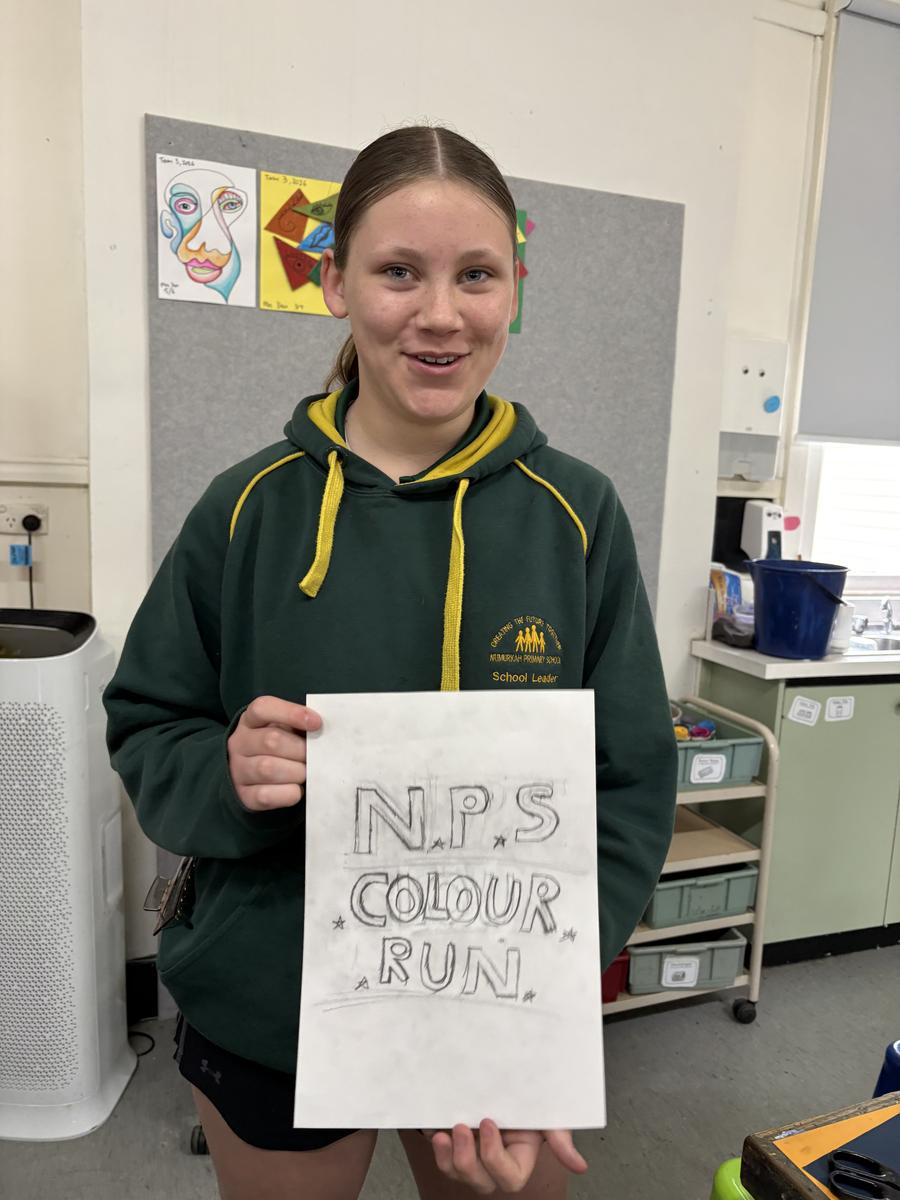 Term 3, 2026
Term 3, 2026
5/6
CREATING THE FUTURE TOGETHER
NUMURKAH PRIMARY SCHOOL
School Leader
N.P.S
COLOUR
RUN